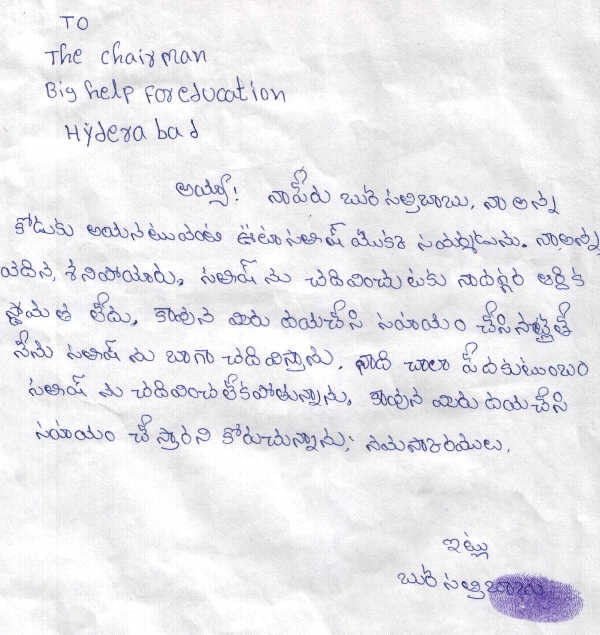 TO
The chairman
Big help For education
Hyderabad
అయ్యా! నాపేరు బుర సత్తిబాబు, నా అన్న
కోడుకు అయినటువంటి ఊటా సతిష్ యొకక సంరక్షకుడును. నా అన్న,
వదిన, శనిపోయారు, సతిష్ ను చదివించుటకు నాదగ్గర ఆర్దిక
స్తోమత లేదు, కావున మిరు దయచేసి సహాయం చేసినట్లైతే
నేను సతిష్ ను బాగా చదివిస్తాను, నాది చాలా పేదకుటుంబం
సతిష్ ను చదివించలేకపోతున్నాను, కావున మిరు దయచేసి
సహాయం చేస్తారని కోరుచున్నాను, నమసాకరములు,
ఇట్లు
బుర సత్తిబాబు